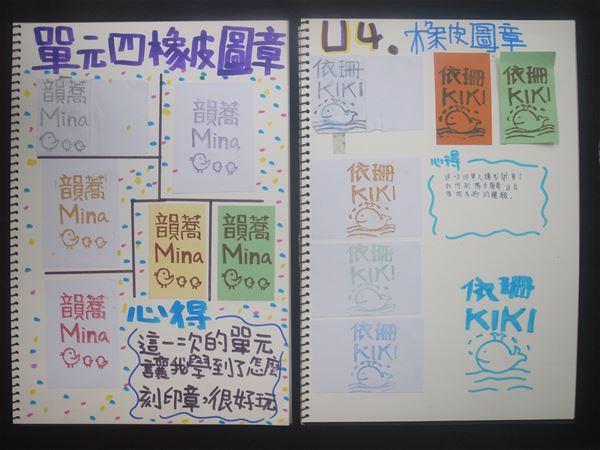 單元四橡皮圖章
韻蕎
Mina
韻蕎
Mina
韻蕎
Mina
韻蕎
Mina
韻蕎
Mina
韻蕎
Mina
心得
這一次的單元
讓我學到了怎麼
刻印章,很好玩
U4.橡皮圖章
依珊
KIKI
依珊
KIKI
依珊
KIKI
依珊
KIKI
依珊
KIKI
依珊
KIKI
依珊
KIKI
心得